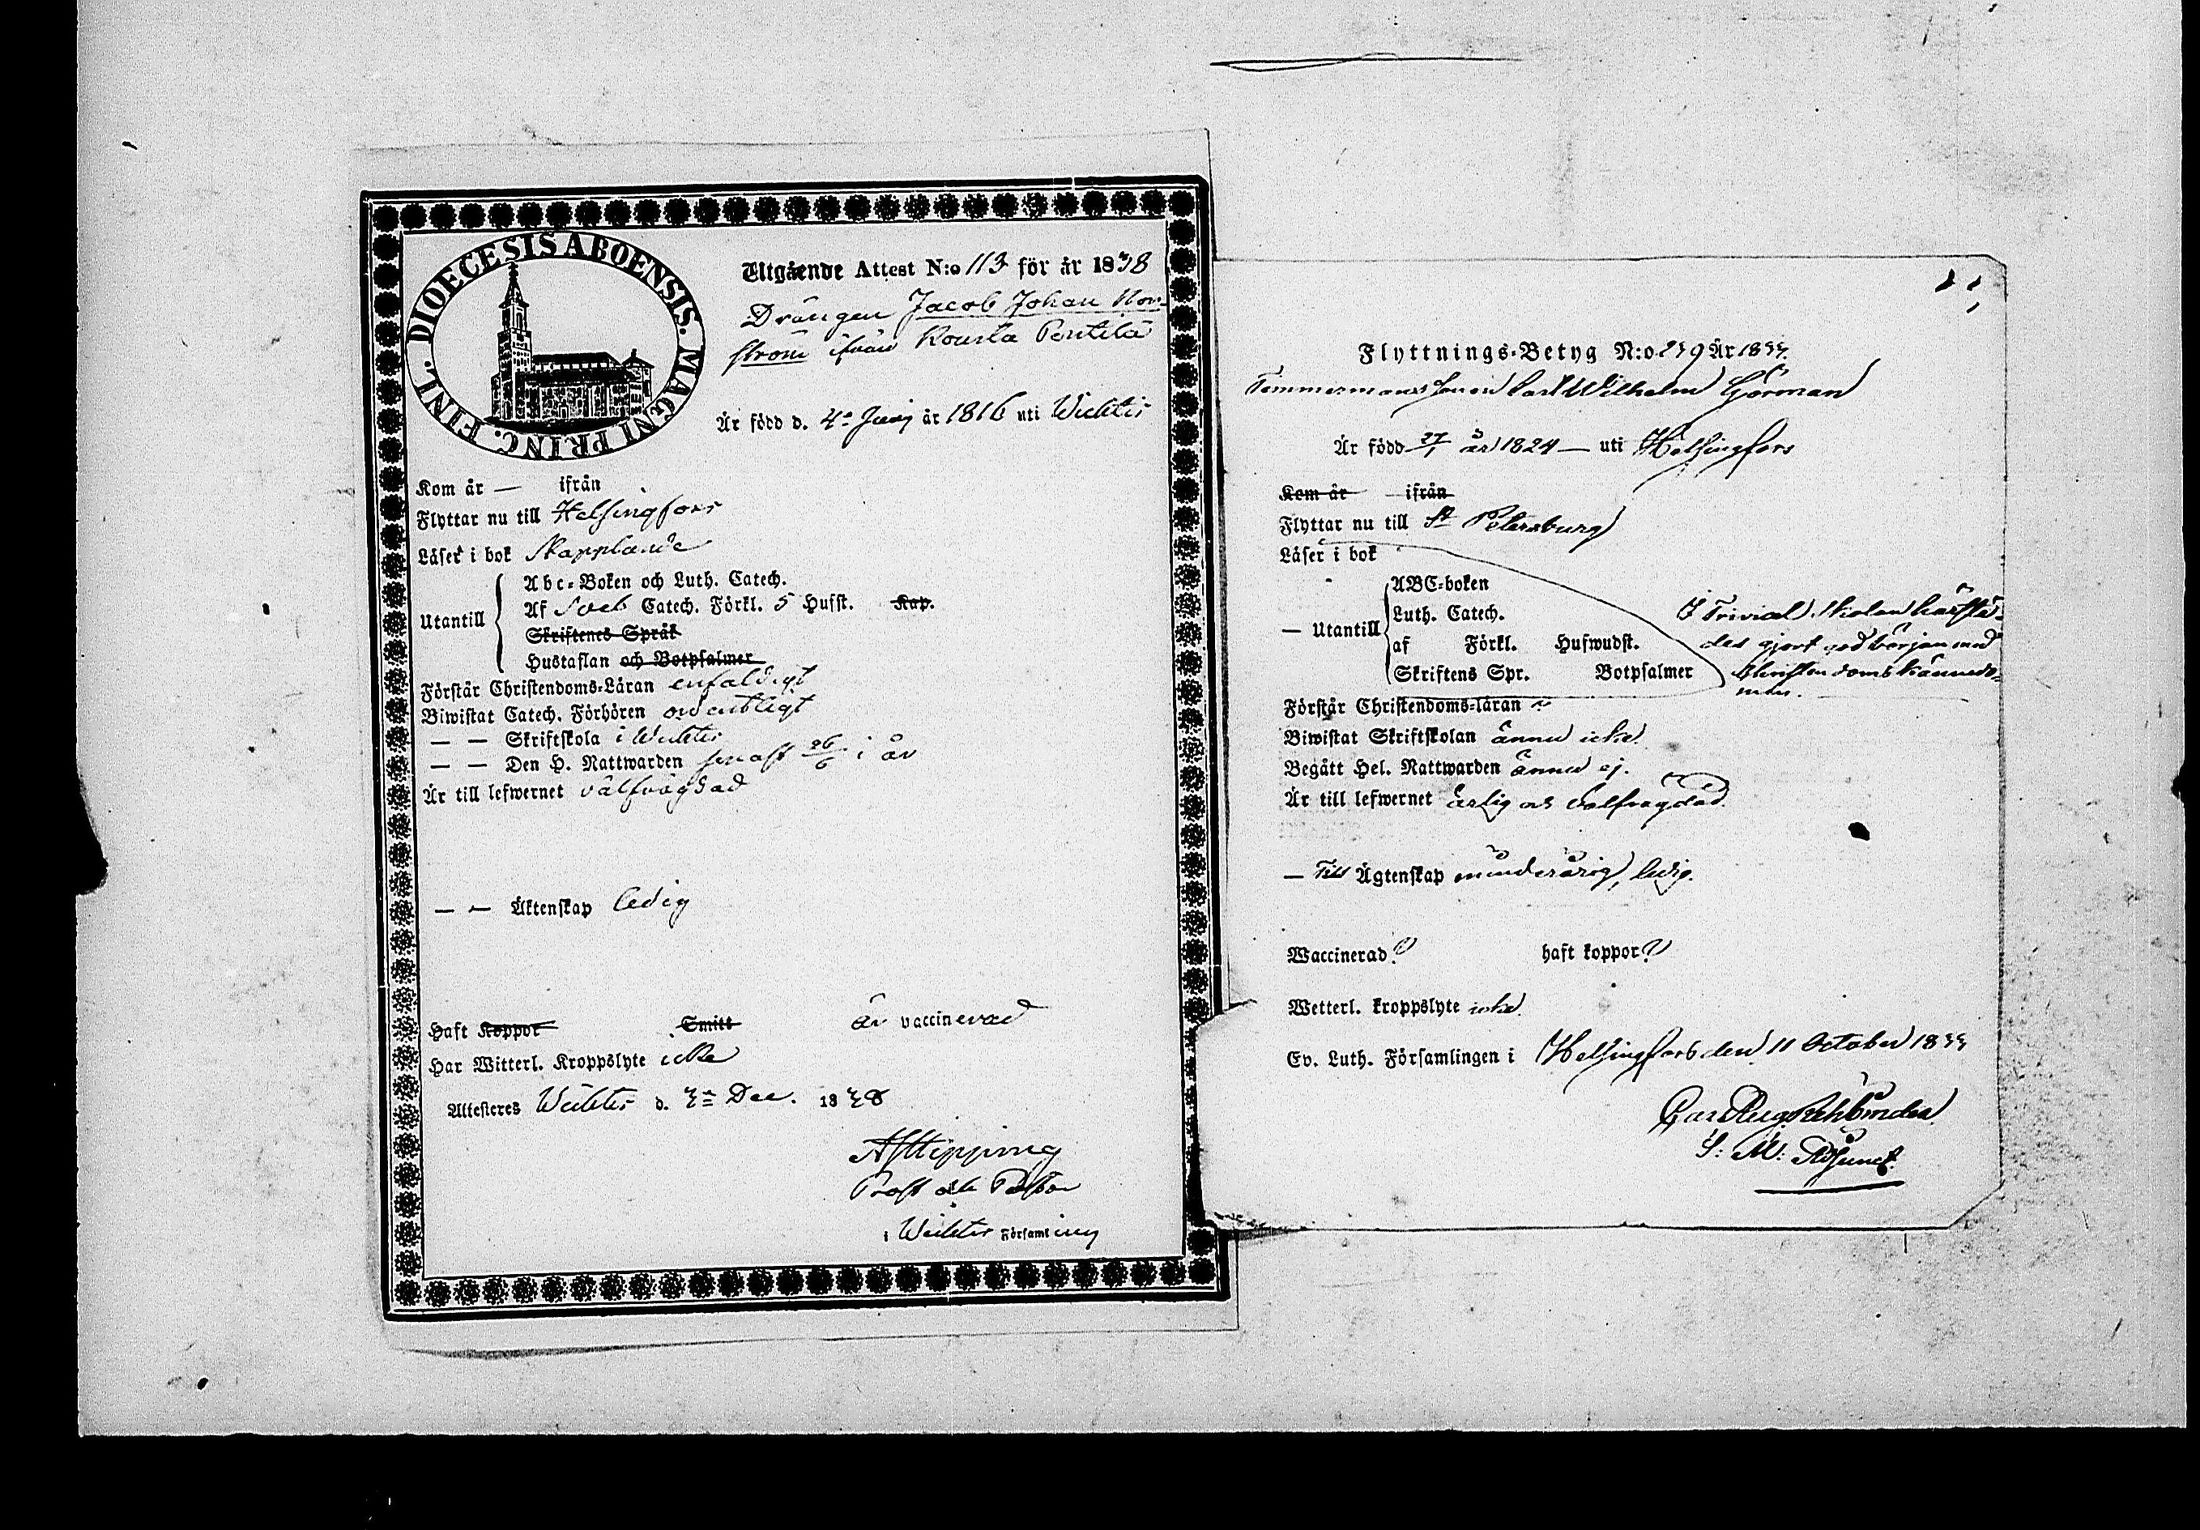 DIOECESIS ABOENSIS. MAGNI PRINC. FINL.
Utgående Attest N:o 113 för år 1838
Drängen Jacob Johan Nor-
ström ifrån Kourla Penttilä
Är född d. 4de Junij år 1816 uti Wichtis
Kom år — ifrån
Flyttar nu till Helsingfors
Läser i bok Skapplande
Utantill
Abc-Boken och Luth. Catech.
Af Sveb Catech. Förkl. 5 Hufst. Kap.
Skriftenes Språk
Hustaflan och Botpsalmer
Förstår Christendoms-Läran enfaldigt
Biwistat Catech. Förhören ordentligt
— — Skriftskola i Wichtis
— — Den H. Nattwarden senast 26/6 i år
Är till lefwernet välfrägdad
— — Äktenskap ledig
Haft Koppor Smitt är vaccinerad
Har Witterl. Kroppslyte icke
Attesteres Wichtis d. 3de Dec. 1838
Prost och Pastor
i Wichtis Församling
Flyttnings-Betyg N:o 239 År 1833.
Timmermans sonen Carl Wilhelm Görman
Är född 27/1 år 1824 — uti Helsingfors
Kom år — ifrån
Flyttar nu till St Petersburg
Läser i bok
— Utantill
ABC-boken
Luth. Catech.
af Förkl. Hufwudst.
Skriftens Spr. Botpsalmer
I Trivial Skolan härstä-
des gjort god början med
Christendoms kännedo-
men.
Förstår Christendoms-läran
Biwistat Skriftskolan ännu icke.
Begått Hel. Nattwarden ännu ej.
Är till lefwernet ärlig och välfrägdad.
— Till Ägtenskap minderårig, ledig.
Waccinerad? haft koppor?
Wetterl. kroppslyte icke.
Ev. Luth. Församlingen i Helsingfors den 11 October 1833
Carl Aug Rehbinder
S: M: Adjunct.